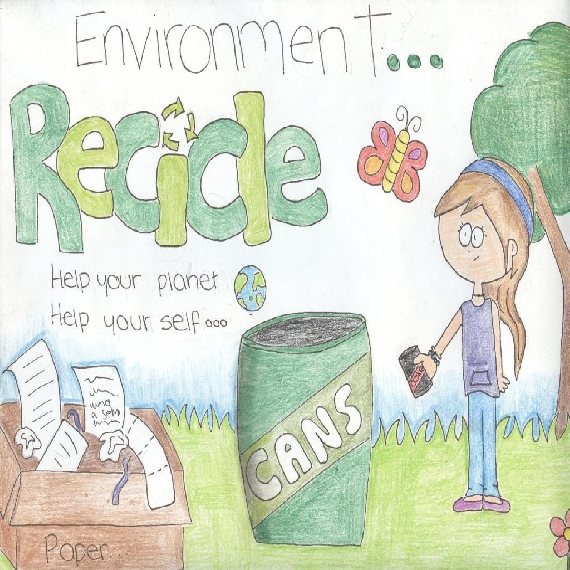 Environment...
Recicle
Help your planet
Help your self ooo
CANS
Paper...